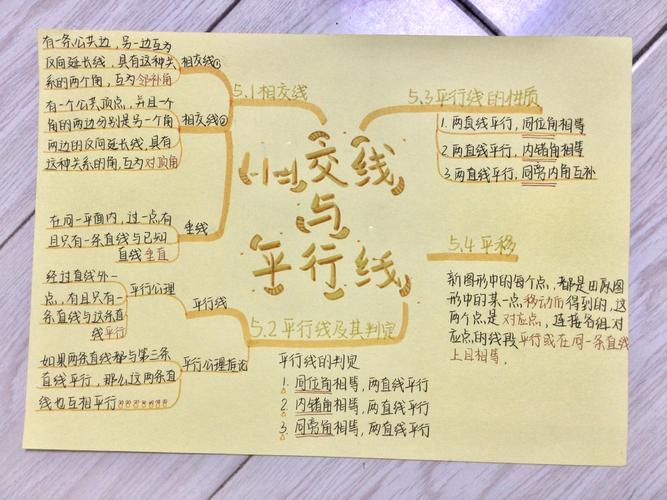 相交线
与
平行线
5.1相交线
相交线①
有一条公共边,另一边互为
反向延长线,具有这种关
系的两个角,互为邻补角
相交线②
有一个公共顶点,并且一个
角的两边分别是另一个角
两边的反向延长线,具有
这种关系的角,互为对顶角
垂线
在同一平面内,过一点有
且只有一条直线与已知
直线垂直
5.2平行线及其判定
平行线
平行公理
经过直线外一
点,有且只有一
条直线与这条直
线平行
平行公理推论
如果两条直线都与第三条
直线平行,那么这两条直
线也互相平行
平行线的判定
1.同位角相等,两直线平行
2.内错角相等,两直线平行
3.同旁角相等,两直线平行
5.3平行线的性质
1.两直线平行,同位角相等
2.两直线平行,内错角相等
3.两直线平行,同旁内角互补
5.4平移
新图形中的每个点,都是由原图
形中的某一点移动后得到的,这
两个点是对应点,连接各组对
应点的线段平行或在同一条直线
上且相等.